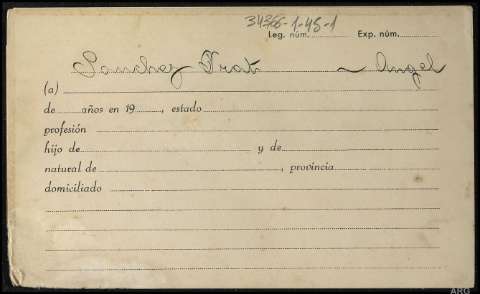 34366-1-45-1
Leg. núm. Exp. núm.
Sanchez Prat ~ Angel
(a)
de años en 19 , estado
profesión
hijo de y de
natural de , provincia
domiciliado
ARG